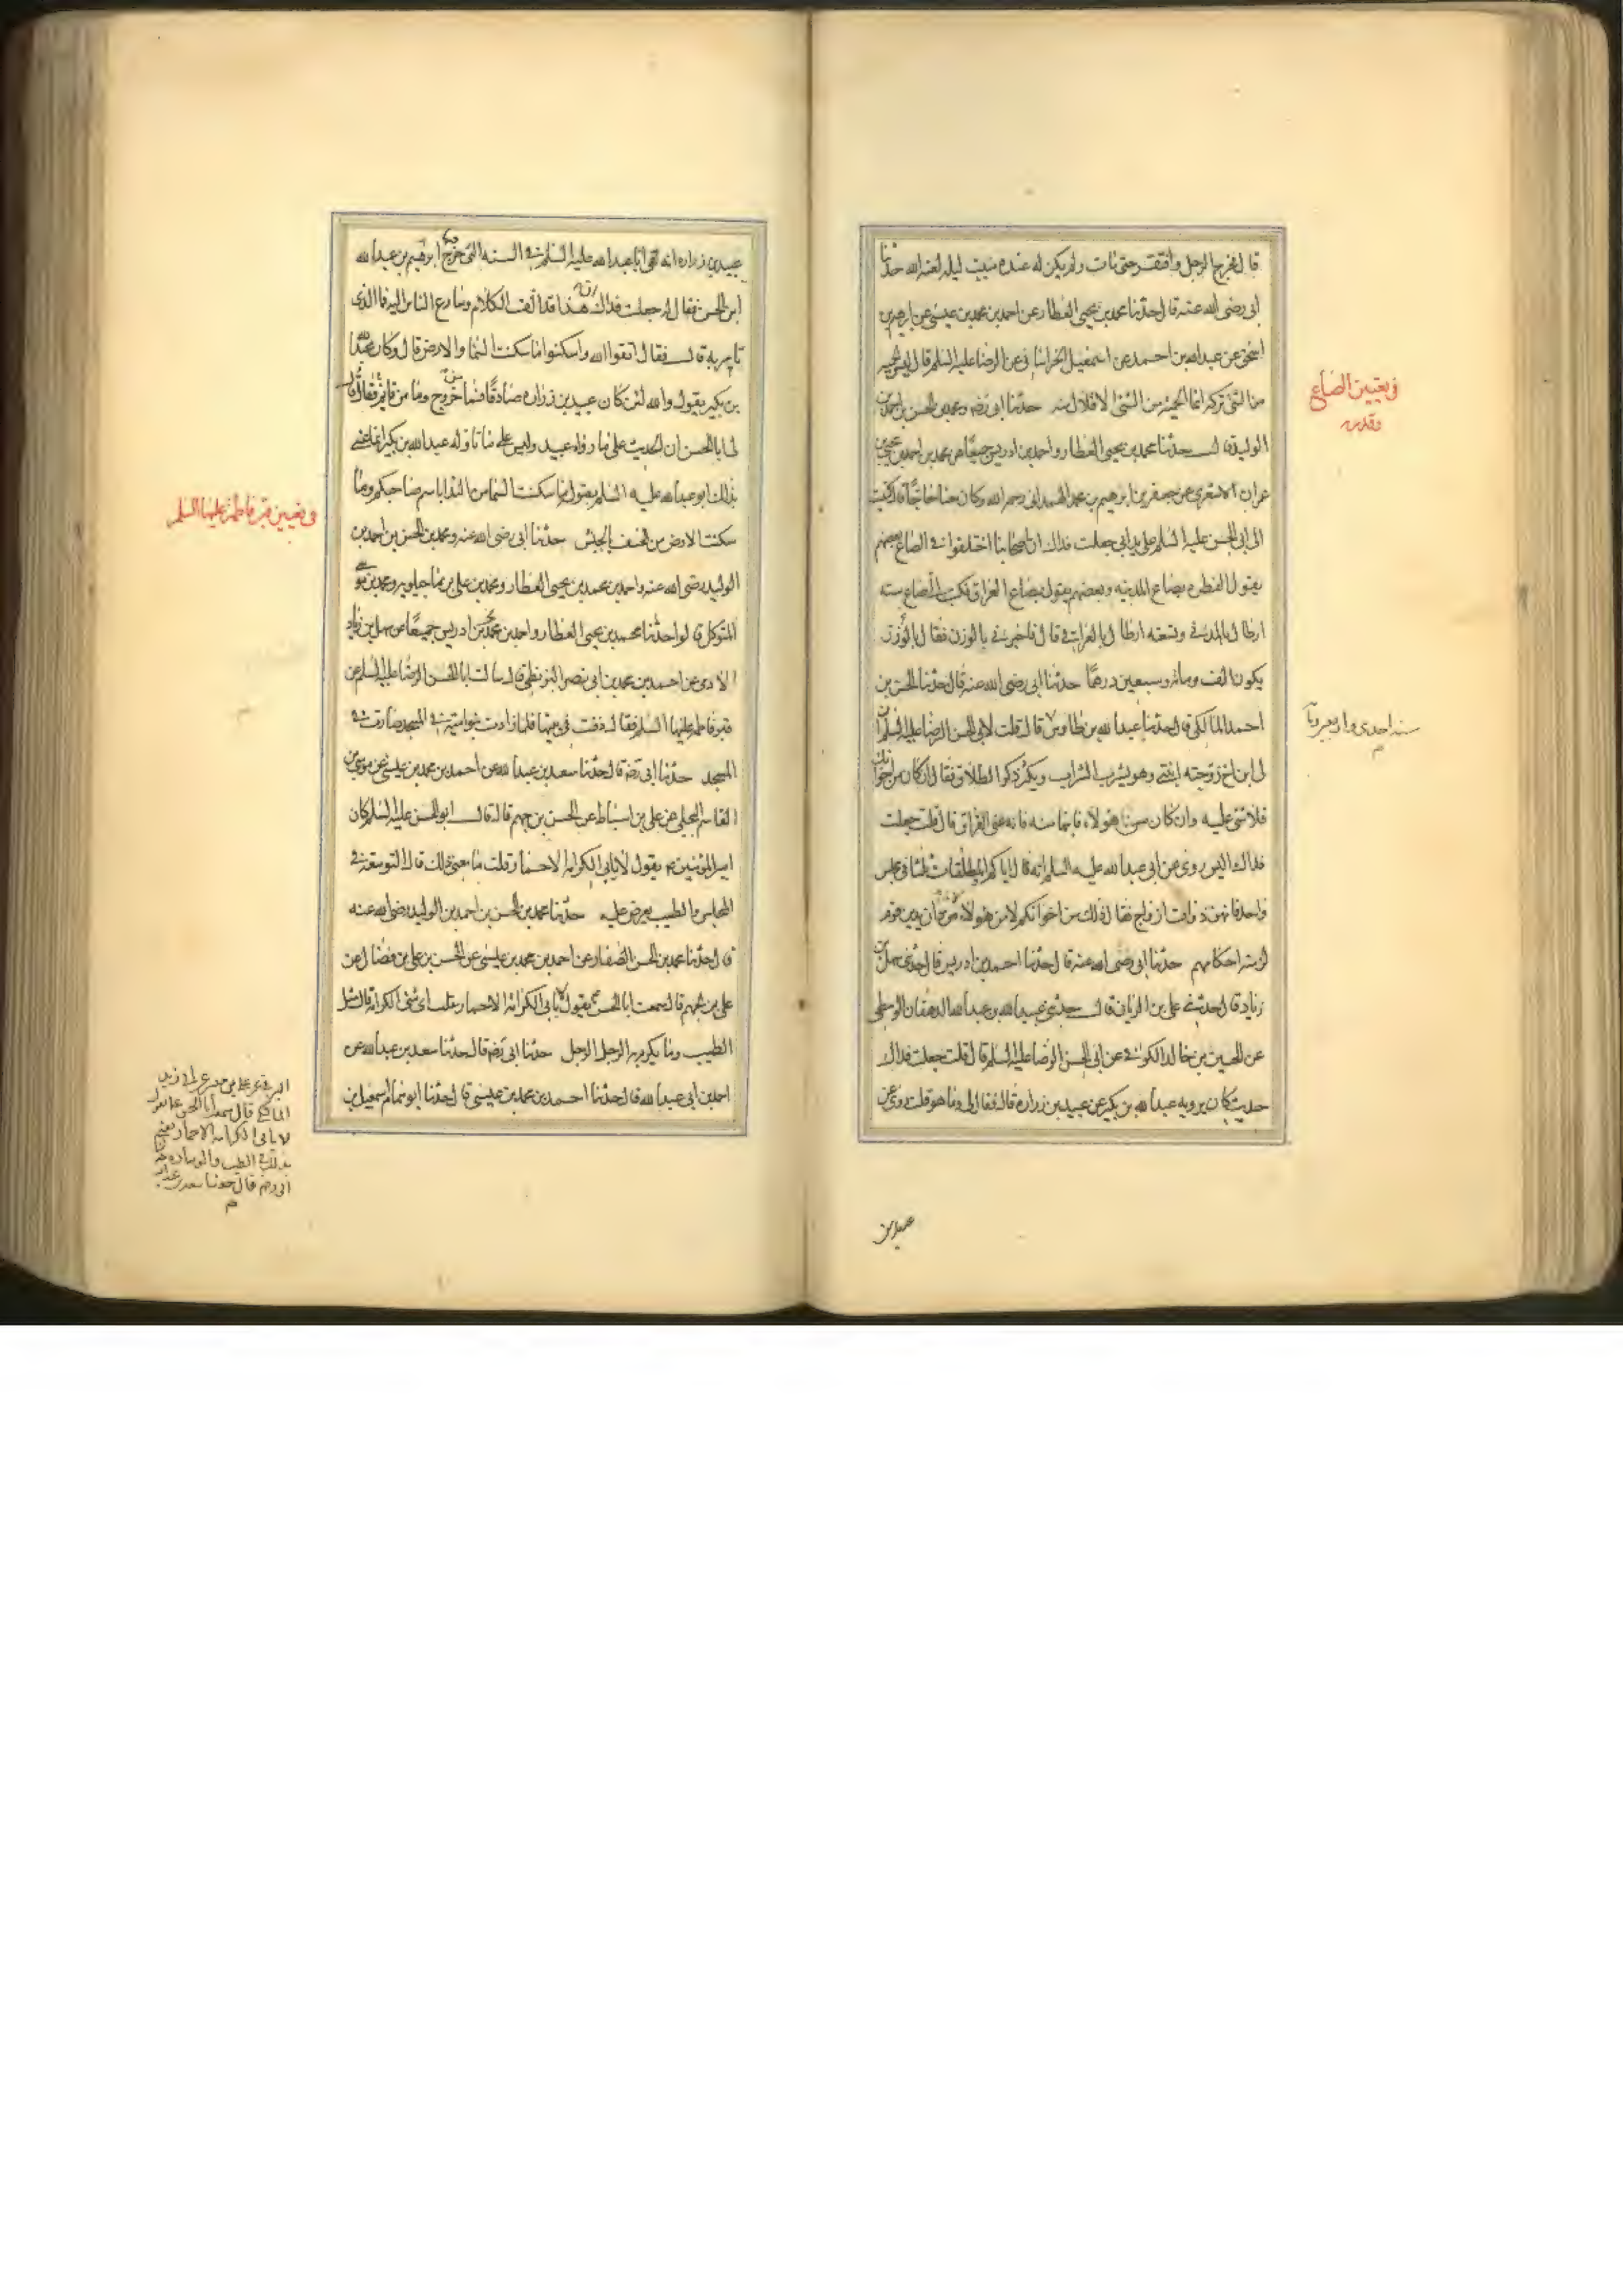 قال فخرج الرجل وافتقر حتى مات ولم يكن له عنده مبيت ليله لعنه الله حدثنا
ابى رضى الله عنه قال حدثنا محمد بن يحيى العطار عن احمد بن محمد بن عيسى عن ابرهيم بن
اسحق عن عبد الله بن احمد عن اسمعيل الخراسانى عن الرضا عليه السلم قال ليس الحميه
من الشئ تركه انما الحميه من الشئ الاقلال منه حدثنا ابى رضه ومحمد بن الحسن بن احمد بن
الوليد قالـــ حدثنا محمد بن يحيى العطار واحمد بن ادريس جميعًا عن محمد بن احمد بن يحيى بن
عمران الاشعرى عن جعفر بن ابرهيم بن محمد الهمدانى رحمه الله وكان معنا حاجًا قال كتبت
الى ابى الحسن عليه السلم على يد ابى جعلت فداك ان اصحابنا اختلفوا فى الصاع بعضهم
يقول الفطره بصاع المدينه وبعضهم يقول بصاع العراق فكتب الى الصاع سته
ارطال بالمدنى وتسعه ارطال بالعراقى قال فاخبرنى بالوزن فقال بالوزن
يكون الف ومائه وسبعين درهمًا حدثنا ابى رضى الله عنه قال حدثنا الحسن بن
احمد المالكى قال حدثنا عبد الله بن طاوس قال قلت لابى الحسن الرضا عليه السلم ان
لى ابن اخ زوجته ابنتى وهو يشرب الشراب ويكثر ذكر الطلاق فقال ان كان من اخوانك
فلا شئ عليه وان كان من هولاء فابنها منه فانه عنى الفراق قال قلت جعلت
فداك اليس روى عن ابى عبد الله عليه السلم انه قال اياكم والمطلقات ثلثا فى مجلس
واحد فانهن ذوات ازواج فقال ذلك من اخوانكم لا من هولاء من دان بدين قوم
لزمته احكامهم حدثنا ابى رضى الله عنه قال حدثنا احمد بن ادريس قال حدثنى سهل بن
زياد قال حدثنى على بن الريان قالـــ حدثنى عبيد الله بن عبد الله الدهقان الواسطى
عن الحسين بن خالد الكوفى عن ابى الحسن الرضا عليه السلم قال قلت جعلت فداك
حديث كان يرويه عبد الله بن بكير عن عبيد بن زراره قال فقال لى وما هو قلت روى عن
فى تعيين الصاع
وقدره
عبيد بن
عبيد بن زراره انه لقى ابا عبد الله عليه السلم فى السنه التى خرج فيها ابرهيم بن عبد الله
ابن الحسن فقال له جعلت فداك ان هذا قد الف الكلام وسارع الناس اليه فما الذى
تامر به قالـــ فقال اتقوا الله واسكنوا ما سكنت السماء والارض قال وكان عبد الله
بن بكير يقول والله لئن كان عبيد بن زراره صادقًا فما من خروج وما من قائم فقال
لى ابا الحسن ان الحديث على ما رواه عبيد وليس على ما تاوله عبد الله بن بكير انما عنى
بذلك ابو عبد الله عليه السلم بقوله ما سكنت السماء من النداء باسم صاحبكم وما
سكنت الارض من الخسف بالجيش حدثنا ابى رضى الله عنه ومحمد بن الحسن بن احمد بن
الوليد رضى الله عنه واحمد بن محمد بن يحيى العطار ومحمد بن على ماجيلويه ومحمد بن موسى
المتوكل قالوا حدثنا محمد بن يحيى العطار واحمد بن ادريس جميعًا عن سهل بن زياد
الادمى عن احمد بن محمد بن ابى نصر البزنطى قال سالت ابا الحسن الرضا عليه السلم عن
قبر فاطمه عليها السلم فقال دفنت فى بيتها فلما زادت بنو اميه فى المسجد صارت فى
المسجد حدثنا ابى رضه قال حدثنا سعد بن عبد الله عن احمد بن محمد بن عيسى عن موسى بن
القاسم البجلى عن على بن اسباط عن الحسن بن جهم قال قالـــ ابو الحسن عليه السلم كان
امير المؤمنين ع يقول لا يابى الكرامه الا حمار قلت ما معنى ذلك قال التوسعه فى
المجلس والطيب يعرض عليه حدثنا محمد بن الحسن بن احمد بن الوليد رضى الله عنه
قال حدثنا محمد بن الحسن الصفار عن احمد بن محمد بن عيسى عن الحسن بن على بن فضال عن
على بن جهم قال سمعت ابا الحسن ع يقول لا يابى الكرامه الا حمار قلت اى شئ الكرامه قال مثل
الطيب وما يكرم به الرجل الرجل حدثنا ابى رضه قال حدثنا سعد بن عبد الله عن
احمد بن ابى عبد الله قال حدثنا احمد بن محمد بن عيسى قال حدثنا ابو تمام اسمعيل بن
فى تعيين قبر فاطمه عليها السلم
البرقى عن على بن ميسر عن ابى زيد
المالكى قال سمعت ابا الحسن ع يقول
لا يابى الكرامه الا حمار يعنى
بذلك فى الطيب والوساده حدثنا
ابى رضه قال حدثنا سعد بن عبد الله